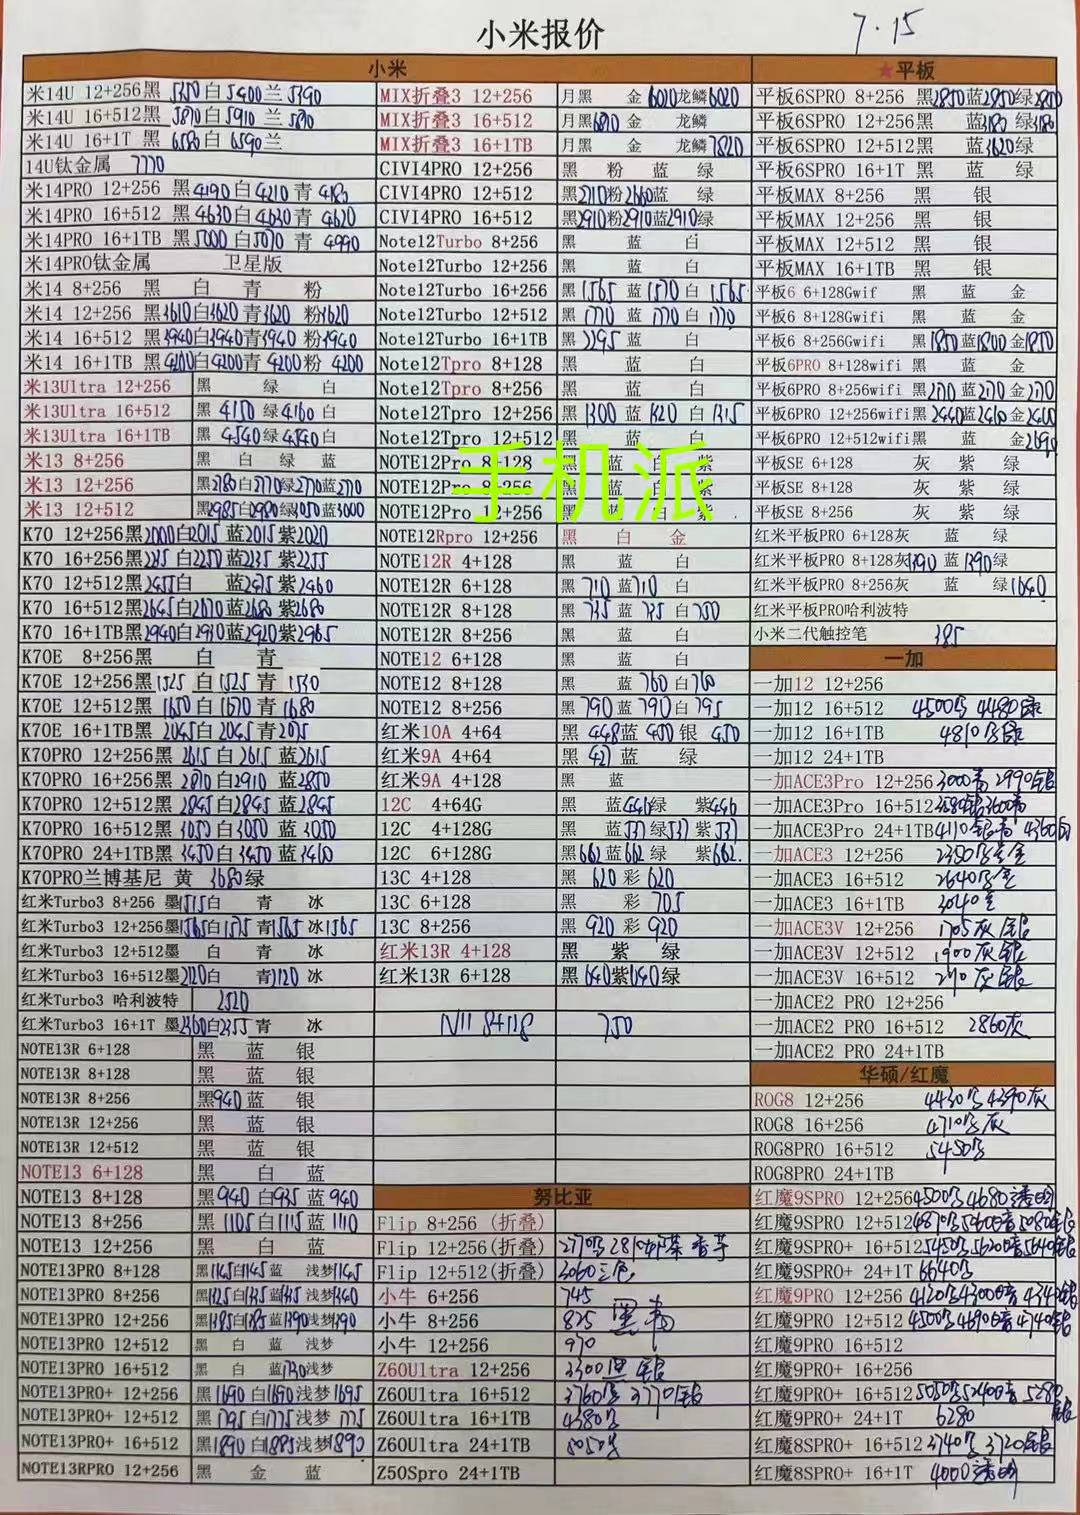 小米报价
7.15
小米
米14U 12+256黑 5350白5400兰5390
米14U 16+512黑 5870白5910兰5890
米14U 16+1T 黑 6580白6590兰
14U钛金属 7770
米14PRO 12+256 黑4190白4210青4185
米14PRO 16+512 黑4630白4630青4620
米14PRO 16+1TB 黑5000白5070青4990
米14PRO钛金属 卫星版
米14 8+256 黑 白 青 粉
米14 12+256 黑3610白3620青3620粉3620
米14 16+512 黑3940白3940青3940粉3940
米14 16+1TB 黑4200白4200青4200粉4200
米13Ultra 12+256 黑 绿 白
米13Ultra 16+512 黑 4150绿4160白
米13Ultra 16+1TB 黑 4540绿4540白
米13 8+256 黑 白 绿 蓝
米13 12+256 黑2780白2770绿2770蓝2770
米13 12+512 黑2985白2980绿3050蓝3000
K70 12+256黑2000白2015蓝2015紫2020
K70 16+256黑2235白2250蓝2235紫2255
K70 12+512黑2455白 蓝2475紫2460
K70 16+512黑2645白2670蓝2680紫2680
K70 16+1TB黑2940白2930蓝2920紫2965
K70E 8+256黑 白 青
K70E 12+256黑1525白1525青1530
K70E 12+512黑1650白1670青1680
K70E 16+1TB黑2045白2045青2075
K70PRO 12+256黑 2615白2615蓝2615
K70PRO 16+256黑 2810白2910蓝2850
K70PRO 12+512黑 2845白2845蓝2845
K70PRO 16+512黑3050白3050蓝3050
K70PRO 24+1TB黑3450白3450蓝3410
K70PRO兰博基尼 黄 3680绿
红米Turbo3 8+256 墨1515白 青 冰
红米Turbo3 12+256墨1565白1575青1565冰1565
红米Turbo3 12+512墨 白 青 冰
红米Turbo3 16+512墨2120白 青2120冰
红米Turbo3 哈利波特 2520
红米Turbo3 16+1T 墨2360白2355青 冰
NOTE13R 6+128 黑 蓝 银
NOTE13R 8+128 黑 蓝 银
NOTE13R 8+256 黑940蓝 银
NOTE13R 12+256 黑 蓝 银
NOTE13R 12+512 黑 蓝 银
NOTE13 6+128 黑 白 蓝
NOTE13 8+128 黑940白935蓝940
NOTE13 8+256 黑1105白1115蓝1110
NOTE13 12+256 黑 白 蓝
NOTE13PRO 8+128 黑1145白1145蓝 浅梦1145
NOTE13PRO 8+256 黑1325白1335蓝1335浅梦1340
NOTE13PRO 12+256 黑1385白1385蓝1390浅梦1390
NOTE13PRO 12+512 黑 白 蓝 浅梦
NOTE13PRO 16+512 黑 白 蓝1730浅梦
NOTE13PRO+ 12+256 黑1690白1690浅梦1695
NOTE13PRO+ 12+512 黑1795白1775浅梦1775
NOTE13PRO+ 16+512 黑1890白1885浅梦1890
NOTE13RPRO 12+256 黑 金 蓝
MIX折叠3 12+256 月黑 金6020龙鳞6020
MIX折叠3 16+512 月黑6810金 龙鳞
MIX折叠3 16+1TB 月黑 金 龙鳞7820
CIVI4PRO 12+256 黑 粉 蓝 绿
CIVI4PRO 12+512 黑2710粉2660蓝 绿
CIVI4PRO 16+512 黑2910粉2910蓝2910绿
Note12Turbo 8+256 黑 蓝 白
Note12Turbo 12+256 黑 蓝 白
Note12Turbo 16+256 黑1565蓝1570白1565
Note12Turbo 16+512 黑1770蓝1770白1770
Note12Turbo 16+1TB 黑2295蓝 白
Note12Tpro 8+128 黑 蓝 白
Note12Tpro 8+256 黑 蓝 白
Note12Tpro 12+256 黑1300蓝1320白1315
Note12Tpro 12+512 黑 蓝 白
NOTE12Pro 8+128 黑 蓝 白 紫
NOTE12Pro 8+256 黑 蓝 白 紫
NOTE12Pro 12+256 黑 蓝 白 紫
手机派
NOTE12Rpro 12+256 黑 白 金
NOTE12R 4+128 黑 蓝 白
NOTE12R 6+128 黑 710蓝710白
NOTE12R 8+128 黑 735蓝735白750
NOTE12R 8+256 黑 蓝 白
NOTE12 6+128 黑 蓝 白
NOTE12 8+128 黑 蓝760白760
NOTE12 8+256 黑790蓝790白795
红米10A 4+64 黑 448蓝450银450
红米9A 4+64 黑 427蓝 绿
红米9A 4+128 黑 蓝
12C 4+64G 黑 蓝446绿 紫446
12C 4+128G 黑 蓝537绿537紫537
12C 6+128G 黑662蓝662绿 紫662
13C 4+128 黑 620彩620
13C 6+128 黑 彩705
13C 8+256 黑920彩920
红米13R 4+128 黑 紫 绿
红米13R 6+128 黑640紫640绿
N11 8+128 750
努比亚
Flip 8+256 (折叠)
Flip 12+256(折叠)
Flip 12+512(折叠) 3060三色
小牛 6+256 745
小牛 8+256 825
小牛 12+256 970
Z60Ultra 12+256 3300黑 银
Z60Ultra 16+512
Z60Ultra 16+1TB 4380
Z60Ultra 24+1TB 5050
Z50Spro 24+1TB
★平板
平板6SPRO 8+256 黑2850蓝2850绿2850
平板6SPRO 12+256黑 蓝3180绿3180
平板6SPRO 12+512黑 蓝3620绿
平板6SPRO 16+1T 黑 蓝 绿
平板MAX 8+256 黑 银
平板MAX 12+256 黑 银
平板MAX 12+512 黑 银
平板MAX 16+1TB 黑 银
平板6 6+128Gwif 黑 蓝 金
平板6 8+128Gwif 黑 蓝 金
平板6 8+256Gwif 黑1850蓝1800金1850
平板6PRO 8+128wifi 黑 蓝 金
平板6PRO 8+256wifi 黑2170蓝2170金2170
平板6PRO 12+256wifi黑2440蓝2410金2465
平板6PRO 12+512wifi黑 蓝 金2690
平板SE 6+128 灰 紫 绿
平板SE 8+128 灰 紫 绿
平板SE 8+256 灰 紫 绿
红米平板PRO 6+128灰 蓝 绿
红米平板PRO 8+128灰1390蓝1390绿
红米平板PRO 8+256灰 蓝 绿1640
红米平板PRO哈利波特
小米二代触控笔 385
一加
一加12 12+256
一加12 16+512 4500 4480绿
一加12 16+1TB 4810
一加12 24+1TB
一加ACE3Pro 12+256 3000青 2990银
一加ACE3Pro 16+512
一加ACE3Pro 24+1TB4110银青 4360白
一加ACE3 12+256 2350
一加ACE3 16+512 2640
一加ACE3 16+1TB 3040
一加ACE3V 12+256 1705灰 银
一加ACE3V 12+512 1900灰 银
一加ACE3V 16+512 灰 银
一加ACE2 PRO 12+256
一加ACE2 PRO 16+512 2860灰
一加ACE2 PRO 24+1TB
华硕/红魔
ROG8 12+256 4430 4390灰
ROG8 16+256 4710 灰
ROG8PRO 16+512 5450
ROG8PRO 24+1TB
红魔9SPRO 12+256 4500 4680透明
红魔9SPRO 12+512
红魔9SPRO+ 16+512
红魔9SPRO+ 24+1T 6640
红魔9PRO 12+256
红魔9PRO 12+512
红魔9PRO 16+512
红魔9PRO+ 16+256
红魔9PRO+ 16+512
红魔9PRO+ 24+1T 6280
红魔8SPRO+ 16+512 3740 3720银
红魔8SPRO+ 16+1T 4000透明